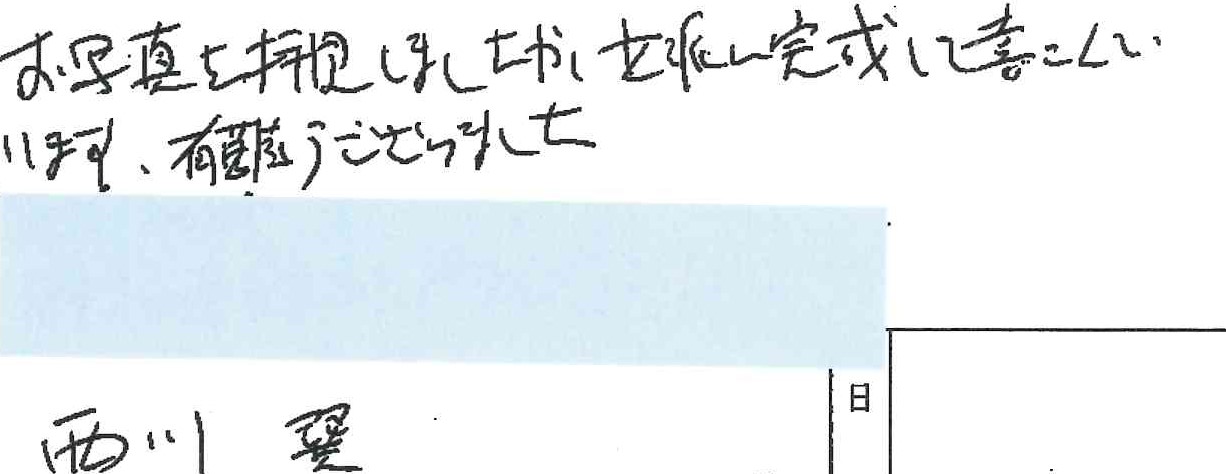 お写真を拝見しましたが、立派に完成して喜こんで
います、有難うございました
日
西川